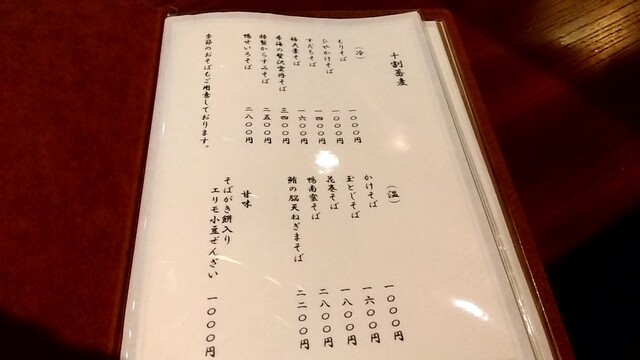 十割蕎麦
（冷）
もりそば 一〇〇〇円
ひやかけそば 一〇〇〇円
すだちそば 一四〇〇円
梅大葉そば 一六〇〇円
贅沢雲丹そば 三四〇〇円
特製からすみそば 二五〇〇円
鴨せいろそば 二八〇〇円
季節のおそばもご用意しております。
（温）
かけそば 一〇〇〇円
玉とじそば 一六〇〇円
花巻そば 一八〇〇円
鴨南蛮そば 二八〇〇円
鮪の脳天ねぎまそば 二二〇〇円
甘味
そばがき餅入り
エリモ小豆ぜんざい 一〇〇〇円